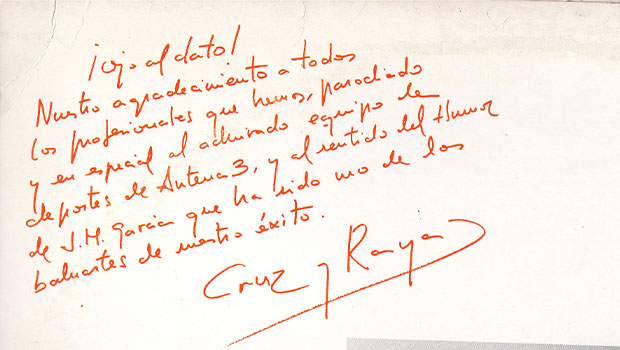 ¡ojo al dato!
Nuestro agradecimiento a todos
los profesionales que hemos parodiado
y en especial al admirado equipo de
deportes de Antena 3, y al sentido del Humor
de J.M. Garcia que ha sido uno de los
baluartes de nuestro éxito.
Cruz y Raya